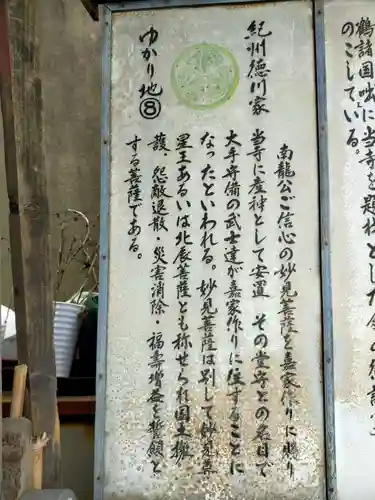 鶴諸国咄に当寺を題材とした
のこしている。
紀州徳川家
ゆかり地⑧
南龍公ご信心の妙見菩薩を嘉家作りに賜り
当寺に産神として安置 その堂守との名目で
大手守備の武士達が嘉家作りに住することに
なったといわれる。妙見菩薩は別して妙見尊
星王あるいは北辰菩薩とも称せられ国土擁
護・怨敵退散・災害消除・福寿増益を誓願と
する菩薩である。